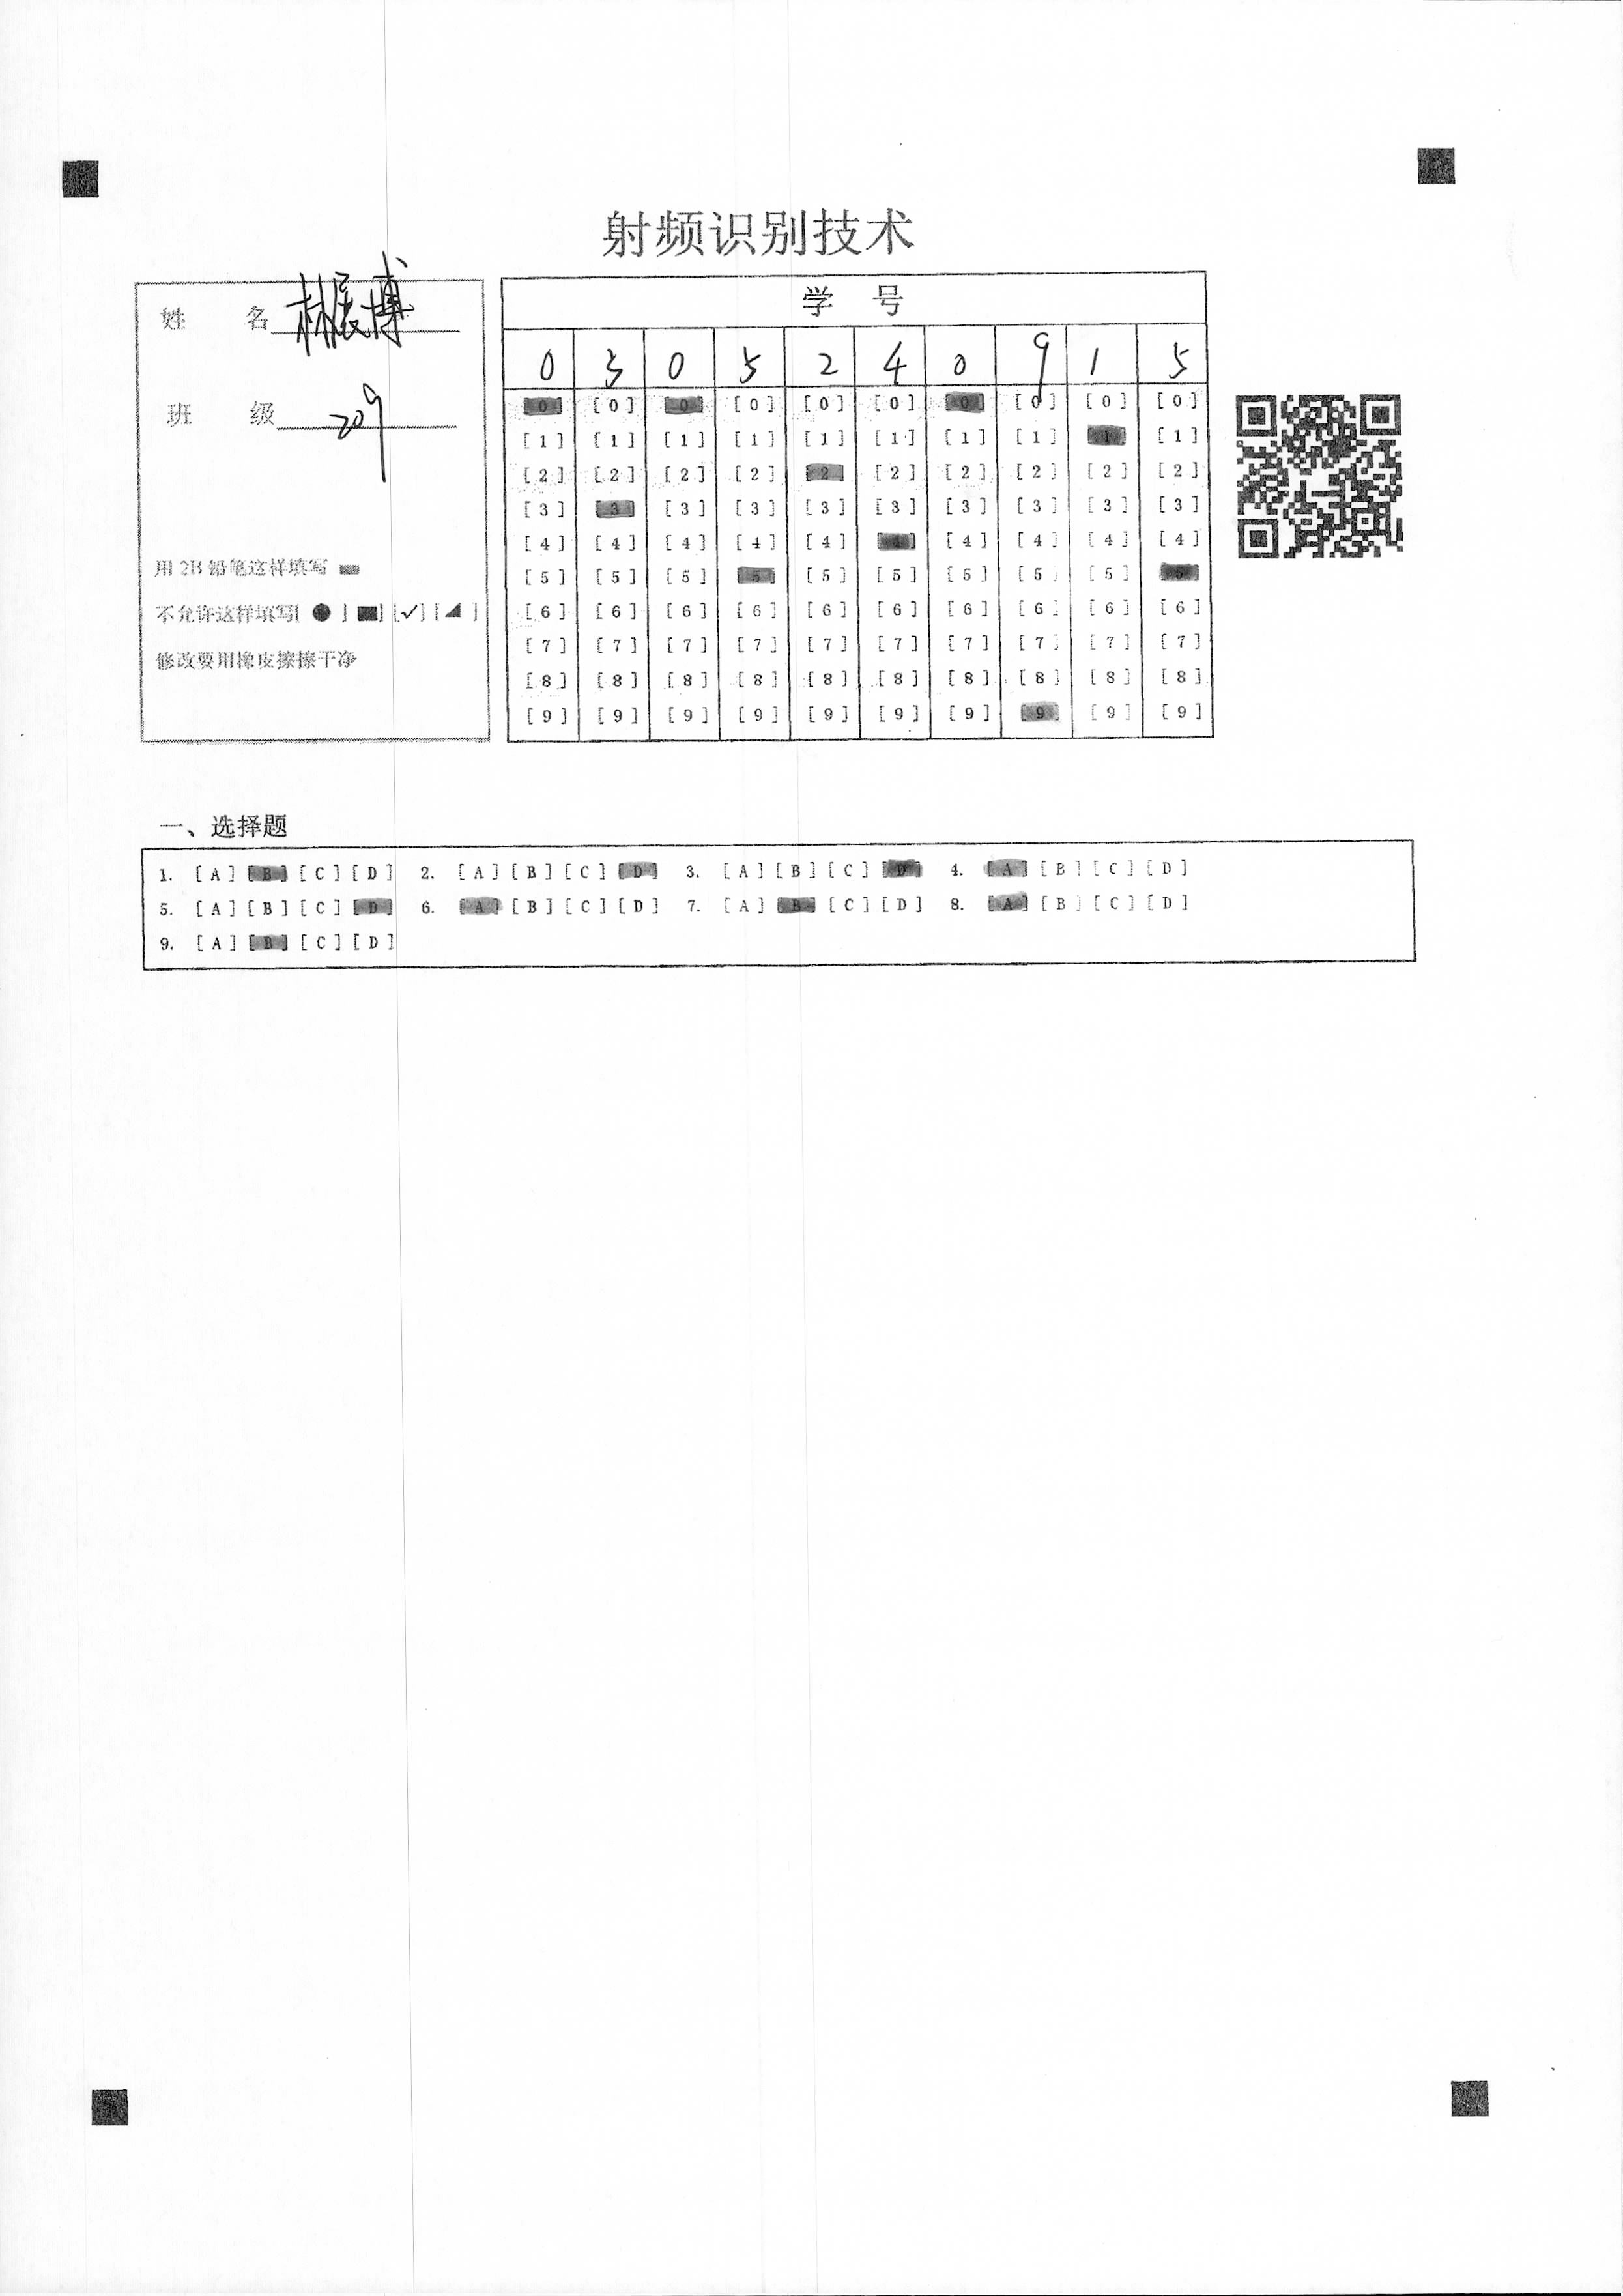 射频识别技术
姓 名 林展博
班 级 209
用 2B 铅笔这样填写
不允许这样填写[ ● ] [■] [✓] [◢ ]
修改要用橡皮擦擦干净
学 号
0 3 0 5 2 4 0 9 1 5
[0] [0] [0] [0] [0] [0] [0] [0] [0] [0]
[1] [1] [1] [1] [1] [1] [1] [1] [1] [1]
[2] [2] [2] [2] [2] [2] [2] [2] [2] [2]
[3] [3] [3] [3] [3] [3] [3] [3] [3] [3]
[4] [4] [4] [4] [4] [4] [4] [4] [4] [4]
[5] [5] [5] [5] [5] [5] [5] [5] [5] [5]
[6] [6] [6] [6] [6] [6] [6] [6] [6] [6]
[7] [7] [7] [7] [7] [7] [7] [7] [7] [7]
[8] [8] [8] [8] [8] [8] [8] [8] [8] [8]
[9] [9] [9] [9] [9] [9] [9] [9] [9] [9]
一、选择题
1. [A] [B] [C] [D] 2. [A] [B] [C] [D] 3. [A] [B] [C] [D] 4. [A] [B] [C] [D]
5. [A] [B] [C] [D] 6. [A] [B] [C] [D] 7. [A] [B] [C] [D] 8. [A] [B] [C] [D]
9. [A] [B] [C] [D]